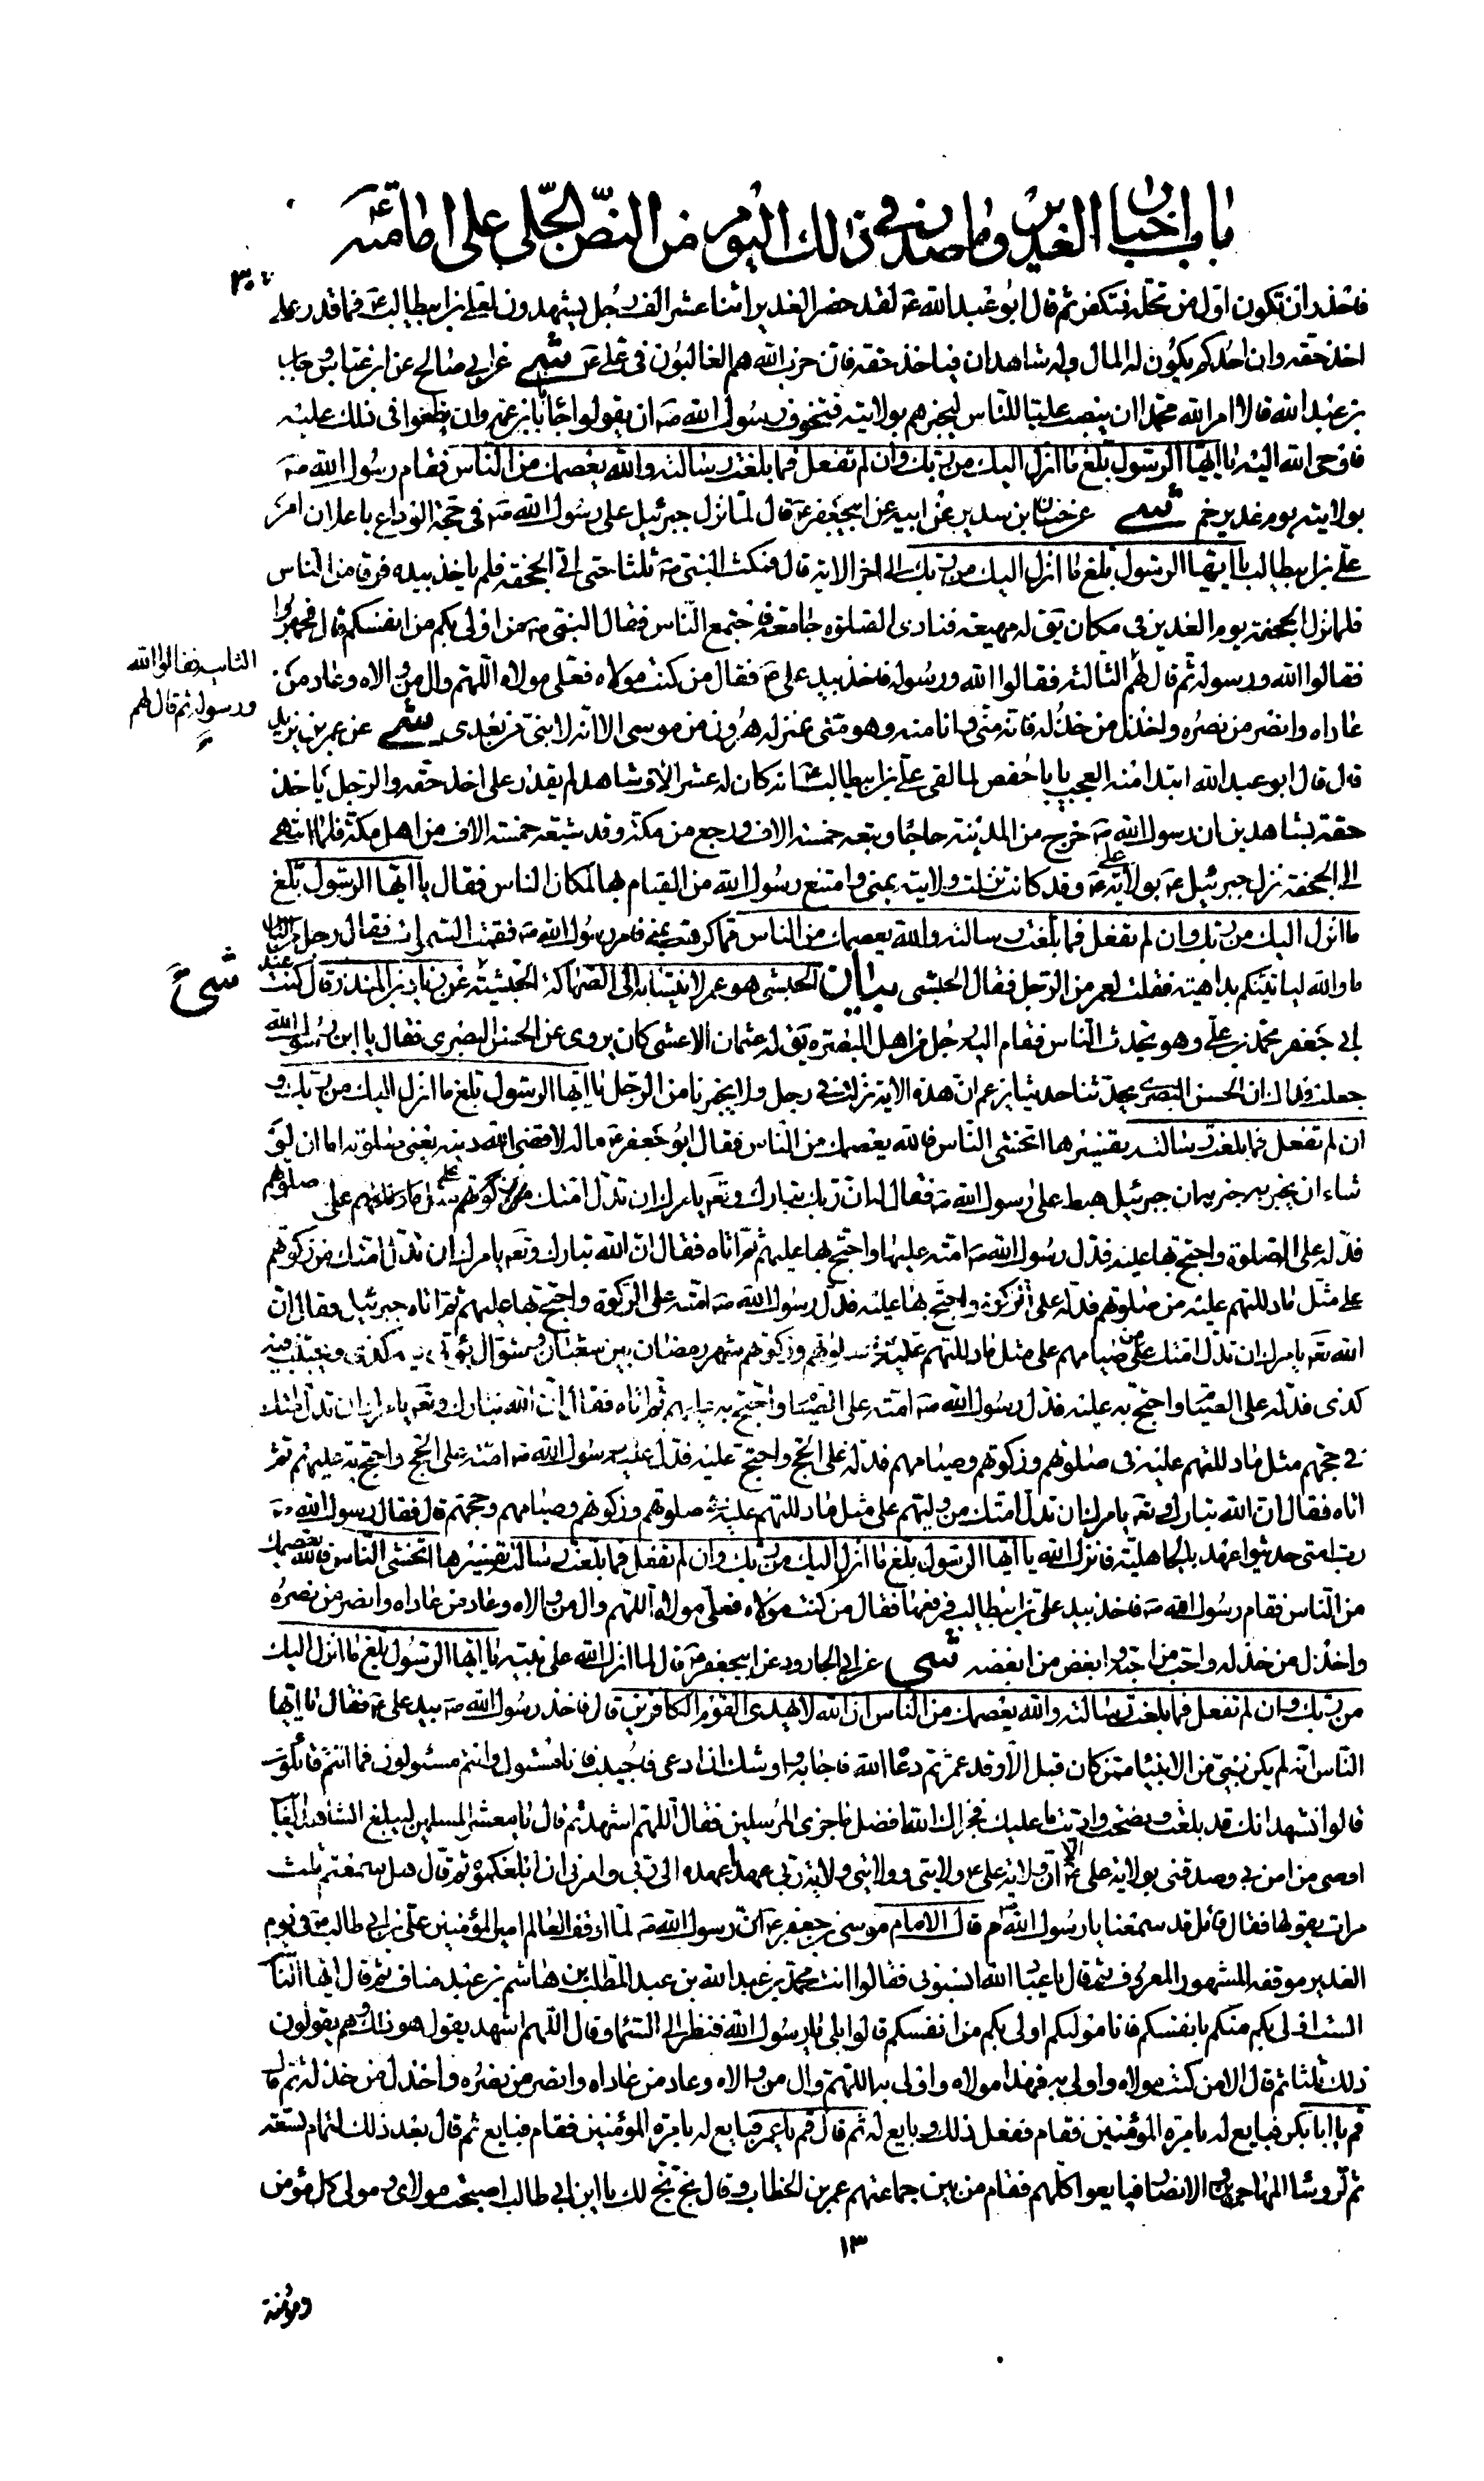 باب اخبار الغدير وما صدر في ذلك اليوم من النص الجلي على امامته ع
٣٠٤
فاحذر ان تكون اول من تخله فتكفر ثم قال ابو عبد الله ع لقد حضر الغدير اثنا عشر الف رجل يشهدون لعلي بن ابيطالب ع فما قدر على
اخذ حقه وان احدكم يكون له المال وله شاهدان فياخذ حقه فان حزب الله هم الغالبون في علي ع شى عن ابي صالح عن ابن عباس وجابر
بن عبد الله قالا امر الله محمدا ان ينصب عليا للناس ليخبرهم بولايته فتخوف رسول الله ص ان يقولوا حابا ابن عمه وان يطغوا في ذلك عليه
فاوحى الله اليه يا ايها الرسول بلغ ما انزل اليك من ربك وان لم تفعل فما بلغت رسالته والله يعصمك من الناس فقام رسول الله ص
بولايته يوم غدير خم شى عن حنان بن سدير عن ابيه عن ابيجعفر ع قال لما نزل جبرئيل على رسول الله ص في حجة الوداع باعلان امر
علي بن ابيطالب يا ايها الرسول بلغ ما انزل اليك من ربك الى اخر الاية قال فمكث النبي ص ثلثا حتى اتى الجحفة فلم ياخذ بيده فرقا من الناس
فلما نزل الجحفة يوم الغدير في مكان يق له مهيعة فنادى الصلوة جامعة فاجتمع الناس فقال النبي ص من اولى بكم من انفسكم قال فجهروا
فقالوا الله ورسوله ثم قال لهم الثالثة فقالوا الله ورسوله فاخذ بيد علي ع فقال من كنت مولاه فعلي مولاه اللهم وال من والاه وعاد من
الثانية فقالوا الله
ورسوله ثم قال لهم
عاداه وانصر من نصره واخذل من خذله فانه مني وانا منه وهو مني بمنزلة هرون من موسى الا انه لا نبي من بعدي شى عن عمر بن يزيد
قال قال ابو عبد الله ابتداء منه العجب يا با حفص لما لقي علي بن ابيطالب ع انه كان له عشرة الاف شاهد لم يقدر على اخذ حقه والرجل ياخذ
حقه بشاهدين ان رسول الله ص خرج من المدينة حاجا وتبعه خمسة الاف ورجع من مكة وقد شيعه خمسة الاف من اهل مكة فلما انتهى
الى الجحفة نزل جبرئيل ع بولاية علي ع وقد كانت نزلت ولايته بمنى وامتنع رسول الله من القيام بها لمكان الناس فقال يا ايها الرسول بلغ
ما انزل اليك من ربك وان لم تفعل فما بلغت رسالته والله يعصمك من الناس مما كرهت بمنى فامر رسول الله ص فقمت السمرات فقال رجل من الناس
اما والله لياتينكم بداهية فقلت لعمر من الرجل فقال الحبشي بيان الحبشي هو عمر لانتسابه الى الصهاكة الحبشية عن زياد بن المنذر قال كنت عند
شىء
ابي جعفر محمد بن علي وهو يحدث الناس فقام اليه رجل من اهل البصرة يق له عثمان الاعشى كان يروي عن الحسن البصري فقال يا ابن رسول الله
جعلت فداك ان الحسن البصري يحدثنا حديثا يزعم ان هذه الاية نزلت في رجل ولا يخبرنا من الرجل يا ايها الرسول بلغ ما انزل اليك من ربك و
ان لم تفعل فما بلغت رسالته تفسيرها اتخشى الناس فالله يعصمك من الناس فقال ابو جعفر ع ماله لا قضى الله دينه يعني صلوته اما ان لو
شاء ان يخبر به خبر به ان جبرئيل هبط على رسول الله ص فقال له ان ربك تبارك وتع يامرك ان تدل امتك على صلوتهم
فدله على الصلوة واحتج بها عليه فدل رسول الله ص امته عليها واحتج بها عليهم ثم اتاه فقال ان الله تبارك وتع يامرك ان تدل امتك من زكوتهم
على مثل ما دللتهم عليه من صلوتهم فدله على الزكوة واحتج بها عليه فدل رسول الله ص امته على الزكوة واحتج بها عليهم ثم اتاه جبرئيل فقال ان
الله تع يامرك ان تدل امتك من صيامهم على مثل ما دللتهم عليه من صلوتهم وزكوتهم شهر رمضان بين شعبان وشوال يؤتى فيه كذى ويجتنب فيه
كذى فدله على الصيام واحتج به عليه فدل رسول الله ص امته على الصيام واحتج به عليهم ثم اتاه فقال ان الله تبارك وتع يامرك ان تدل امتك
في حجهم مثل ما دللتهم عليه في صلوتهم وزكوتهم وصيامهم فدله على الحج واحتج عليه فدل رسول الله ص امته على الحج واحتج به عليهم ثم
اتاه فقال ان الله تبارك وتع يامرك ان تدل امتك من وليهم على مثل ما دللتهم عليه في صلوتهم وزكوتهم وصيامهم وحجهم قال فقال رسول الله ص
رب امتي حديثوا عهد بالجاهلية فانزل الله يا ايها الرسول بلغ ما انزل اليك من ربك وان لم تفعل فما بلغت رسالته تفسيرها اتخشى الناس فالله يعصمك
من الناس فقام رسول الله ص فاخذ بيد علي بن ابيطالب فرفعها فقال من كنت مولاه فعلي مولاه اللهم وال من والاه وعاد من عاداه وانصر من نصره
واخذل من خذله واحب من احبه وابغض من ابغضه شى عن ابي الجارود عن ابيجعفر ع قال لما انزل الله على نبيه يا ايها الرسول بلغ ما انزل اليك
من ربك وان لم تفعل فما بلغت رسالته والله يعصمك من الناس ان الله لا يهدي القوم الكافرين قال فاخذ رسول الله ص بيد علي ع فقال يا ايها
الناس انه لم يكن نبي من الانبياء ممن كان قبل الا وقد عمر ثم دعاه الله فاجابه واوشك ان ادعى فاجيب فانا مسئول وانتم مسئولون فما انتم قائلون
قالوا نشهد انك قد بلغت ونصحت واديت ما عليك فجزاك الله افضل ما جزى المرسلين فقال اللهم اشهد ثم قال يا معشر المسلمين ليبلغ الشاهد الغايب
اوصي من امن بي وصدقني بولاية علي ع الا ان ولاية علي ع ولايتي وولايتي ولاية ربي عهدا عهده الي ربي وامرني ان ابلغكموه ثم قال هل سمعتم ثلث
مرات يقولها فقال قائل قد سمعنا يا رسول الله ص م قال الامام موسى بن جعفر ع ان رسول الله ص لما اوقف العالم امير المؤمنين علي بن ابي طالب ع في يوم
الغدير موقفه المشهور المعروف ثم قال يا عباد الله انسبوني فقالوا انت محمد بن عبد الله بن عبد المطلب بن هاشم بن عبد مناف ثم قال ايها الناس
الست اولى بكم منكم بانفسكم فانا موليكم اولى بكم من انفسكم قالوا بلى يا رسول الله فنظر الى السماء وقال اللهم اشهد يقول هو ذلك وهم يقولون
ذلك ثلثا ثم قال الا من كنت مولاه واولى به فهذا مولاه واولى به اللهم وال من والاه وعاد من عاداه وانصر من نصره واخذل من خذله ثم قال
قم يا ابا بكر فبايع له بامرة المؤمنين فقام ففعل ذلك وبايع له ثم قال قم يا عمر فبايع له بامرة المؤمنين فقام فبايع ثم قال بعد ذلك لتمام تسعة
ثم لرؤساء المهاجرين والانصار فبايعوا كلهم فقام من بين جماعتهم عمر بن الخطاب وقال بخ بخ لك يا ابن ابي طالب اصبحت مولاي ومولى كل مؤمن
١٣
ومؤمنة